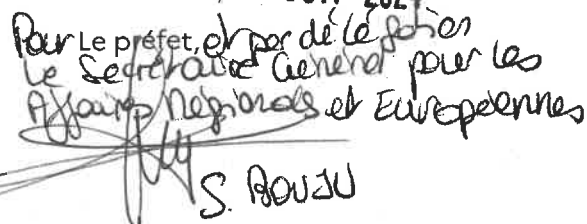 Pour Le préfet, et par délégation
Le Secrétaire Général pour les
Affaires Régionales et Européennes
S. BOUJU